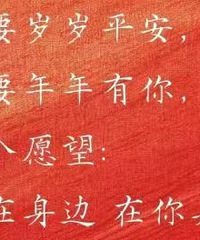 要岁岁平安，
要年年有你，
个愿望：
在身边 在你